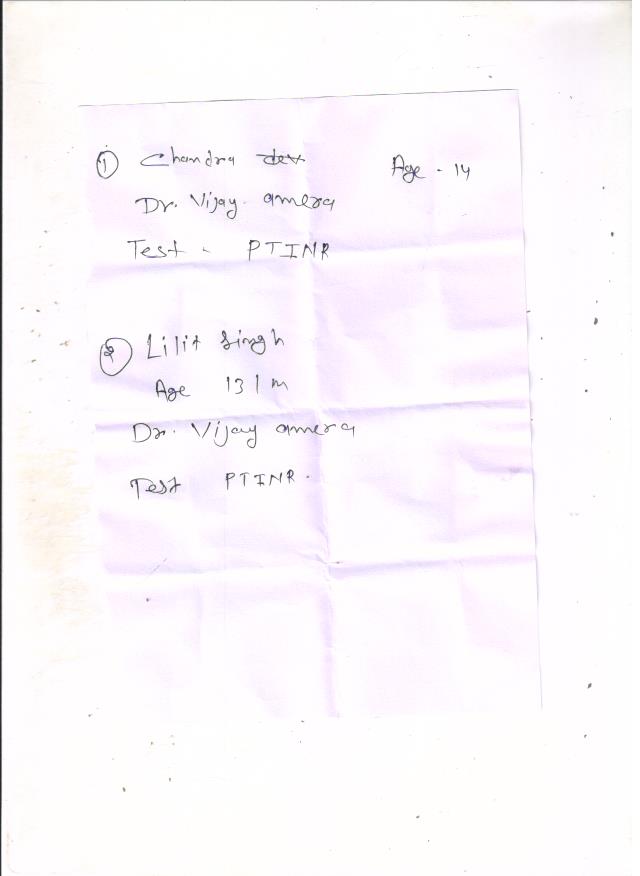 ① Chandra dev Age - 14
Dr. Vijay. amera
Test - PTINR
② Lilit Singh
Age 13/m
Dr. Vijay amera
Test PTINR.